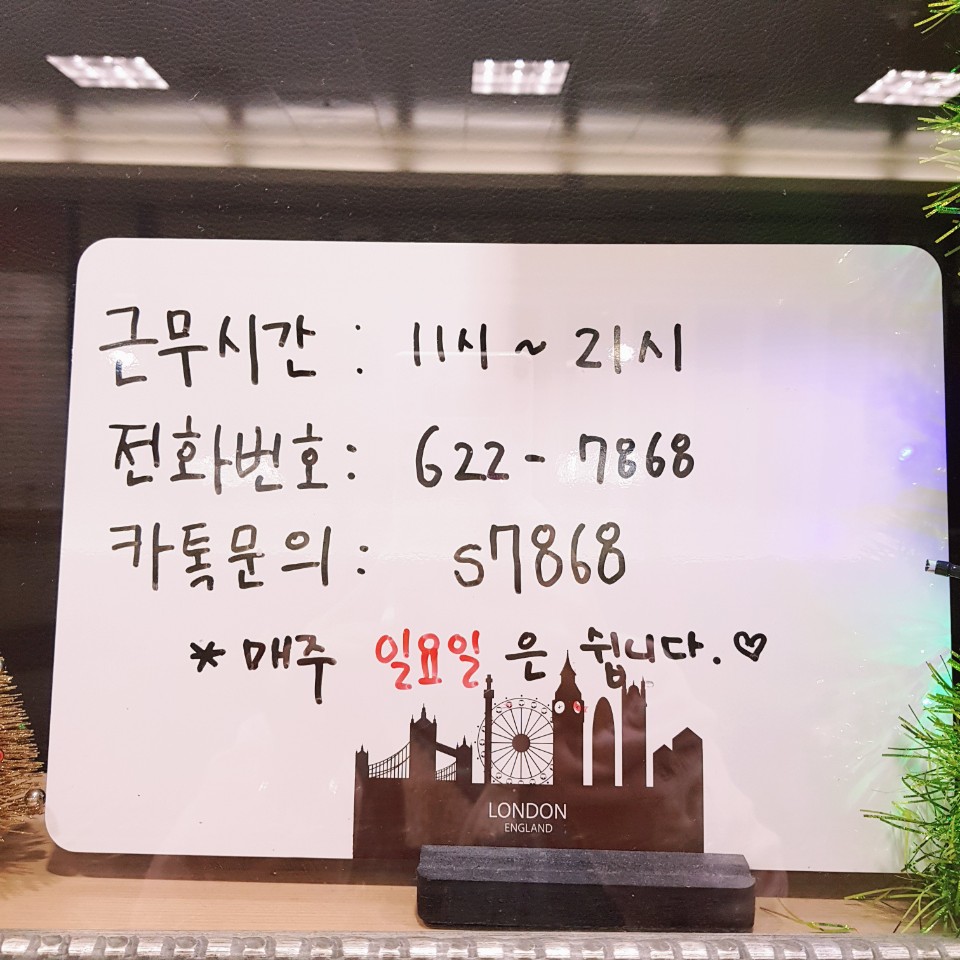 근무시간 : 11시 ~ 21시
전화번호 : 622 - 7868
카톡문의 : s7868
* 매주 일요일은 쉽니다. ♡
LONDON
ENGLAND